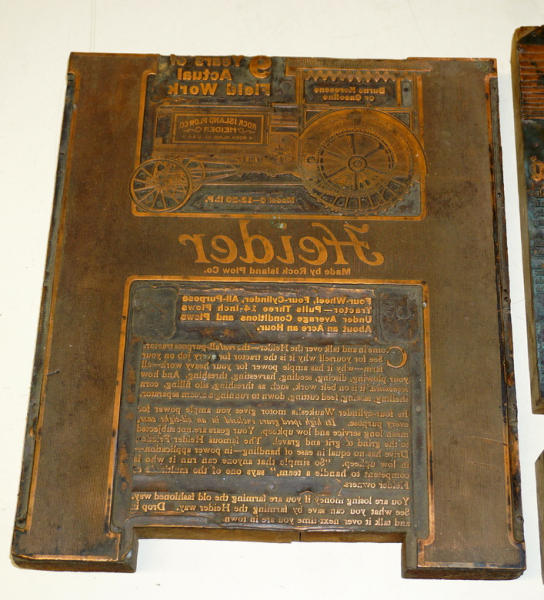 9 Years of
Actual
Field Work
Burns Kerosene
or Gasoline
ROCK ISLAND PLOW CO.
HEIDER
Model C—12-20 H.P.
Heider
Made by Rock Island Plow Co.
Four-Wheel, Four-Cylinder, All-Purpose
Tractor—Pulls Three 14-inch Plows
Under Average Conditions and Plows
About an Acre an Hour.
Come in and talk over the Heider—the real all-purpose tractor.
See for yourself why it is the tractor for every job on your
farm—why it has ample power for your heavy work—all
your plowing, discing, seeding, harvesting, threshing. And how
economical it is on belt work, such as threshing, silo filling, corn
shelling, sawing, feed cutting, down to running a cream separator.
Its four-cylinder Waukesha motor gives you ample power for
every purpose. In high speed gears enclosed in an oil-tight case,
mean long service and low upkeep. Your gears are not subjected
to the grind of grit and gravel. The famous Heider Friction
Drive has no equal in ease of handling—in power application—
in low upkeep. "So simple that anyone can run it who is
competent to handle a team," says one of the multitude of
Heider owners.
You are losing money if you are farming the old fashioned way.
See what you can save by farming the Heider way. Drop in
and talk it over next time you are in town